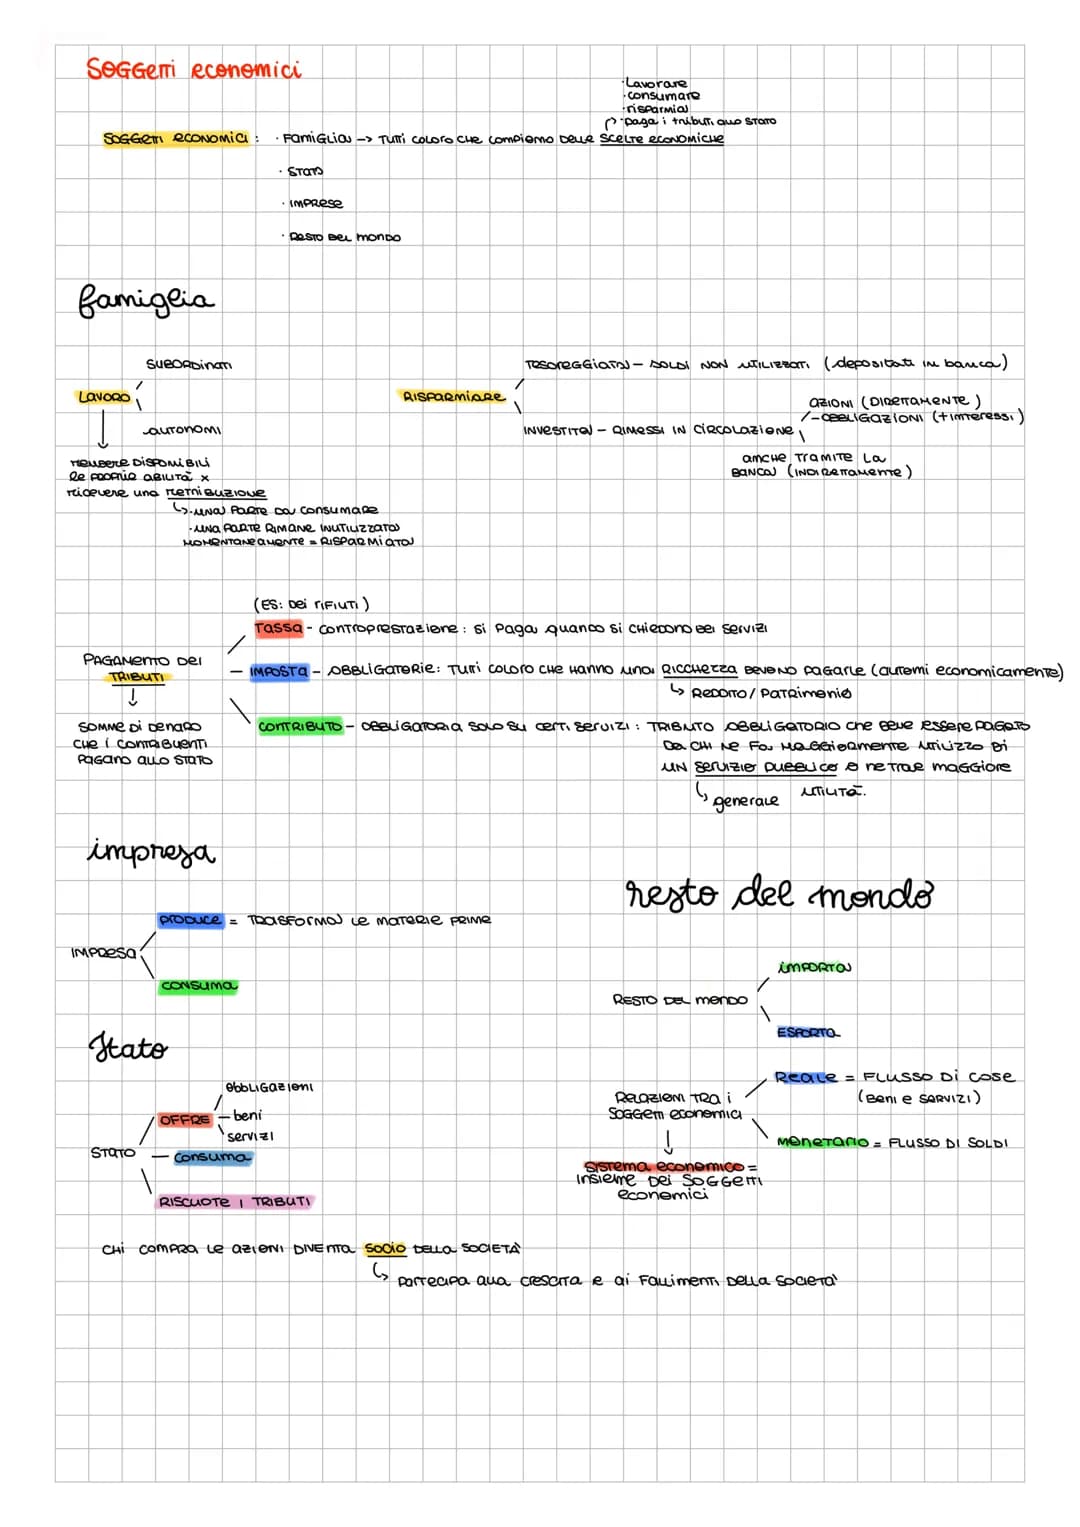 SOGGETTI economici
·Lavorare
·consumare
·risparmia
·paga i tributi allo STATO
SOGGETTI ECONOMICI : · FAMIGLIA -> TUTTI COLORO CHE COMPIONO DELLE SCELTE ECONOMICHE
· STATO
· IMPRESE
· RESTO DEL MONDO
famiglia
SUBORDINATI
LAVORO
AUTONOMI
METTERE DISPONIBILI
LE PROPRIE ABILITÀ X
ricevere una RETRIBUZIONE
↳·UNA PARTE DA CONSUMARE
·UNA PARTE RIMANE INUTILIZZATA
MOMENTANEAMENTE = RISPARMIATA
RISPARMIARE
TESOREGGIATA - SOLDI NON UTILIZZATI (depositati in banca)
INVESTITA - RIMESSI IN CIRCOLAZIONE
AZIONI (DIRETTAMENTE)
-OBBLIGAZIONI (+interessi)
ANCHE TRAMITE LA
BANCA (INDIRETTAMENTE)
(ES: DEI RIFIUTI)
TASSA - CONTROPRESTAZIONE : Si PAGA QUANDO Si CHIEDONO DEI SERVIZI
PAGAMENTO DEI
TRIBUTI
- IMPOSTA - OBBLIGATORIE: TUTTI COLORO CHE HANNO UNA RICCHEZZA DEVONO PAGARLE (autonomi economicamente)
↳ REDDITO/PATRIMONIO
SOMME DI DENARO
CHE i CONTRIBUENTI
PAGANO ALLO STATO
CONTRIBUTO - OBBLIGATORIA SOLO SU CERTI SERVIZI : TRIBUTO OBBLIGATORIO CHE DEVE ESSERE PAGATO
DA CHI NE FA MAGGIORMENTE UTILIZZO DI
UN SERVIZIO PUBBLICO e NE TRAE MAGGIORE
UTILITÀ.
↳ generale
impresa
PRODUCE = TRASFORMA LE MATERIE PRIME
IMPRESA
CONSUMA
resto del mondo
IMPORTA
RESTO DEL MONDO
ESPORTA
Stato
OBBLIGAZIONI
OFFRE - beni
SERVIZI
STATO - CONSUMA
RISCUOTE I TRIBUTI
REALE = FLUSSO DI COSE
(BENI E SERVIZI)
RELAZIONI TRA i
SOGGETTI economici
MONETARIO = FLUSSO DI SOLDI
SISTEMA ECONOMICO =
INSIEME DEI SOGGETTI
economici
CHI COMPRA LE AZIONI DIVENTA SOCIO DELLA SOCIETÀ
↳ PARTECIPA ALLA CRESCITA E AI FALLIMENTI DELLA SOCIETA'